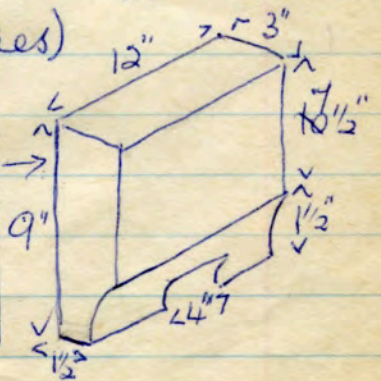 es)
12"
3"
7 1/2"
9"
1 1/2"
4"
1 1/2